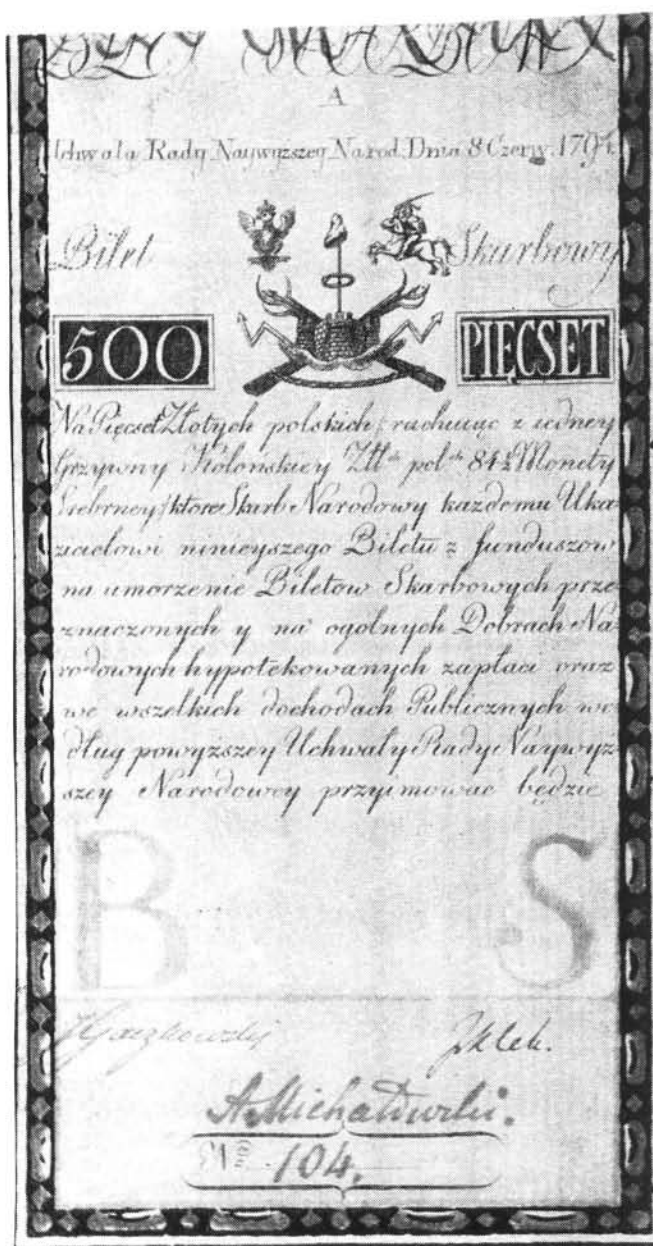 BILET SKARBOWY
A
Uchwała Rady Naywyzszey Narod. Dnia 8 Czerw. 1794.
Bilet Skarbowy
500 PIĘCSET
Na Pięcset Złotych polskich / rachuiąc z iedney
Grzywny Kolońskiey Ztł pol 84½ Monety
Srebrney / ktore Skarb Narodowy kazdemu Uka-
zicielowi ninieyszego Biletu z funduszow
na umorzenie Biletow Skarbowych prze-
znaczonych y na ogolnych Dobrach Na-
rodowych hypotekowanych zapłaci oraz
we wszelkich dochodach Publicznych we-
dług powyższey Uchwały Rady Naywyż-
szey Narodowey przyimować będzie
B S
A Michałowski.
104.